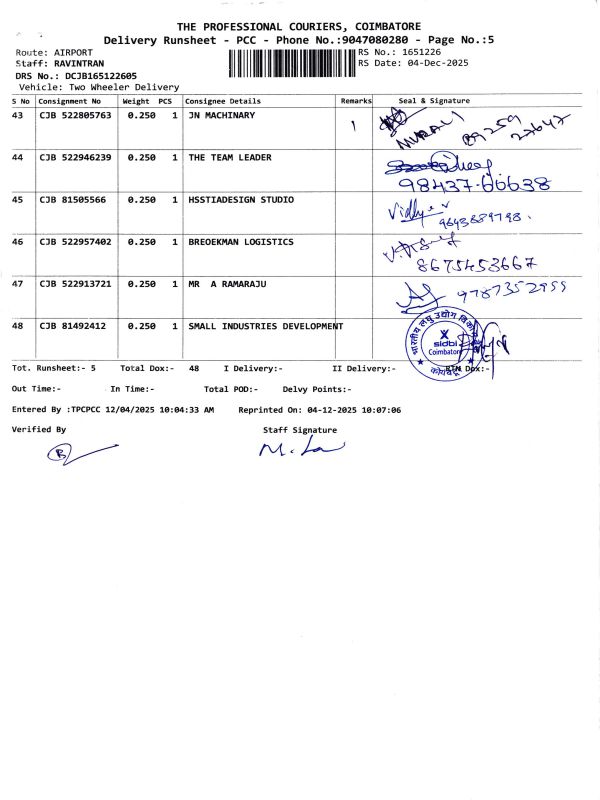 THE PROFESSIONAL COURIERS, COIMBATORE
Delivery Runsheet - PCC - Phone No.:9047080280 - Page No.:5
Route: AIRPORT RS No.: 1651226
Staff: RAVINTRAN RS Date: 04-Dec-2025
DRS No.: DCJB165122605
Vehicle: Two Wheeler Delivery
S No Consignment No Weight PCS Consignee Details Remarks Seal & Signature
43 CJB 522805763 0.250 1 JN MACHINARY 1 MURALI 89259 27647
44 CJB 522946239 0.250 1 THE TEAM LEADER
98437-66638
45 CJB 81505566 0.250 1 HSSTIADESIGN STUDIO Vidhya
9643889798.
46 CJB 522957402 0.250 1 BREOEKMAN LOGISTICS
8675453667
47 CJB 522913721 0.250 1 MR A RAMARAJU 9787352955
48 CJB 81492412 0.250 1 SMALL INDUSTRIES DEVELOPMENT
भारतीय लघु उद्योग विकास
sidbi
Coimbatore
Tot. Runsheet:- 5 Total Dox:- 48 I Delivery:- II Delivery:- RTN Dox:-
Out Time:- In Time:- Total POD:- Delvy Points:-
Entered By :TPCPCC 12/04/2025 10:04:33 AM Reprinted On: 04-12-2025 10:07:06
Verified By Staff Signature